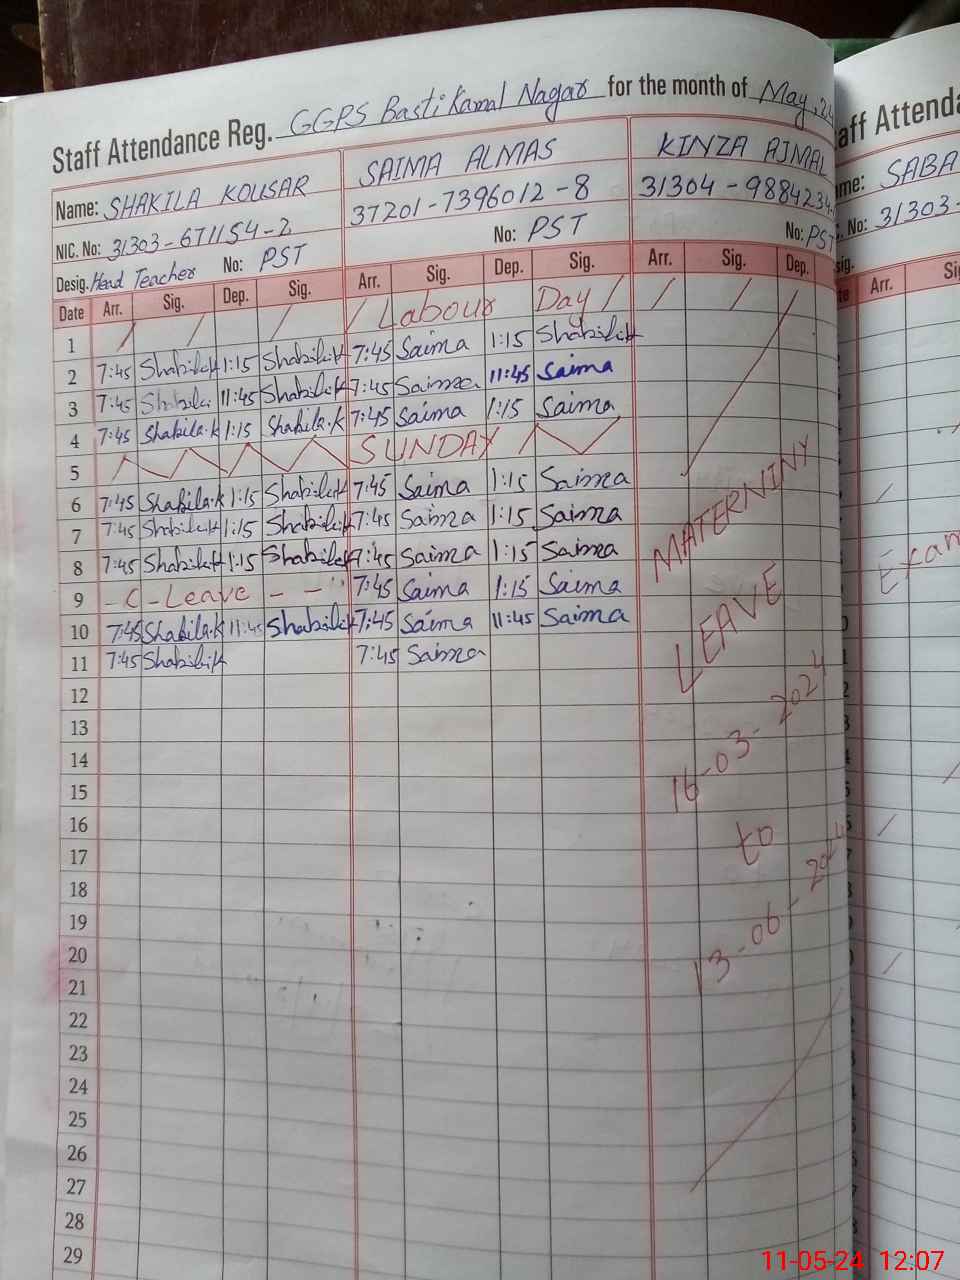 Staff Attendance Reg. GGPS Basti Kamal Nagar for the month of May, 24
Name: SHAKILA KOUSAR SAIMA ALMAS KINZA AJMAL
NIC. No: 31303-671154-2 37201-7396012-8 31304-9884234
Desig. Head Teacher No: PST No: PST No: PST
Date Arr. Sig. Dep. Sig. Arr. Sig. Dep. Sig. Arr. Sig. Dep.
1 Labour Day
2 7:45 Shakila.K 1:15 Shakila.K 7:45 Saima 1:15 Shakila.K
3 7:45 Shakila 11:45 Shakila.K 7:45 Saima 11:45 Saima
4 7:45 Shakila.K 1:15 Shakila.K 7:45 Saima 1:15 Saima
5 SUNDAY
6 7:45 Shakila.K 1:15 Shakila.K 7:45 Saima 1:15 Saima
7 7:45 Shakila.K 1:15 Shakila.K 7:45 Saima 1:15 Saima
8 7:45 Shakila.K 1:15 Shakila.K 7:45 Saima 1:15 Saima
9 - C - Leave - - 7:45 Saima 1:15 Saima
10 7:45 Shakila.K 11:45 Shakila.K 7:45 Saima 11:45 Saima
11 7:45 Shakila.K 7:45 Saima
12
13
14
15
16
17
18
19
20
21
22
23
24
25
26
27
28
29
MATERNINY
LEAVE
16-03-2024
to
13-06-2024
aff Attenda
me: SABA
No: 31303-
sig.
Arr.
Exam
11-05-24 12:07